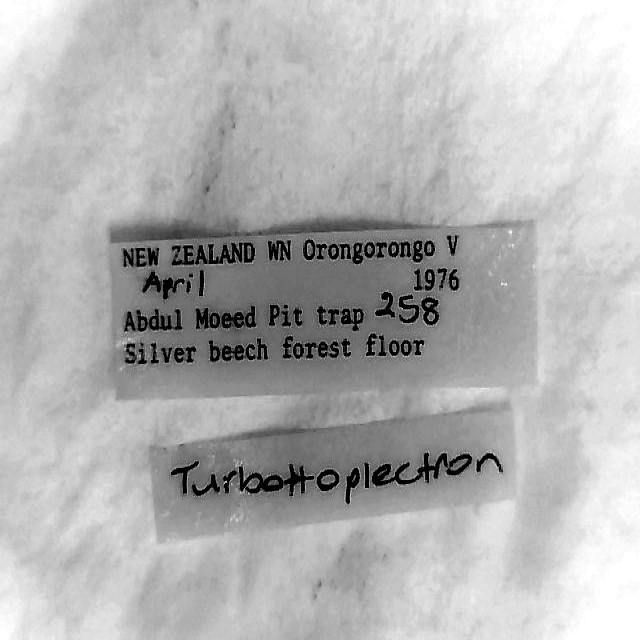 NEW ZEALAND WN Orongorongo V
April 1976
Abdul Moeed Pit trap 258
Silver beech forest floor
Turbottoplectron